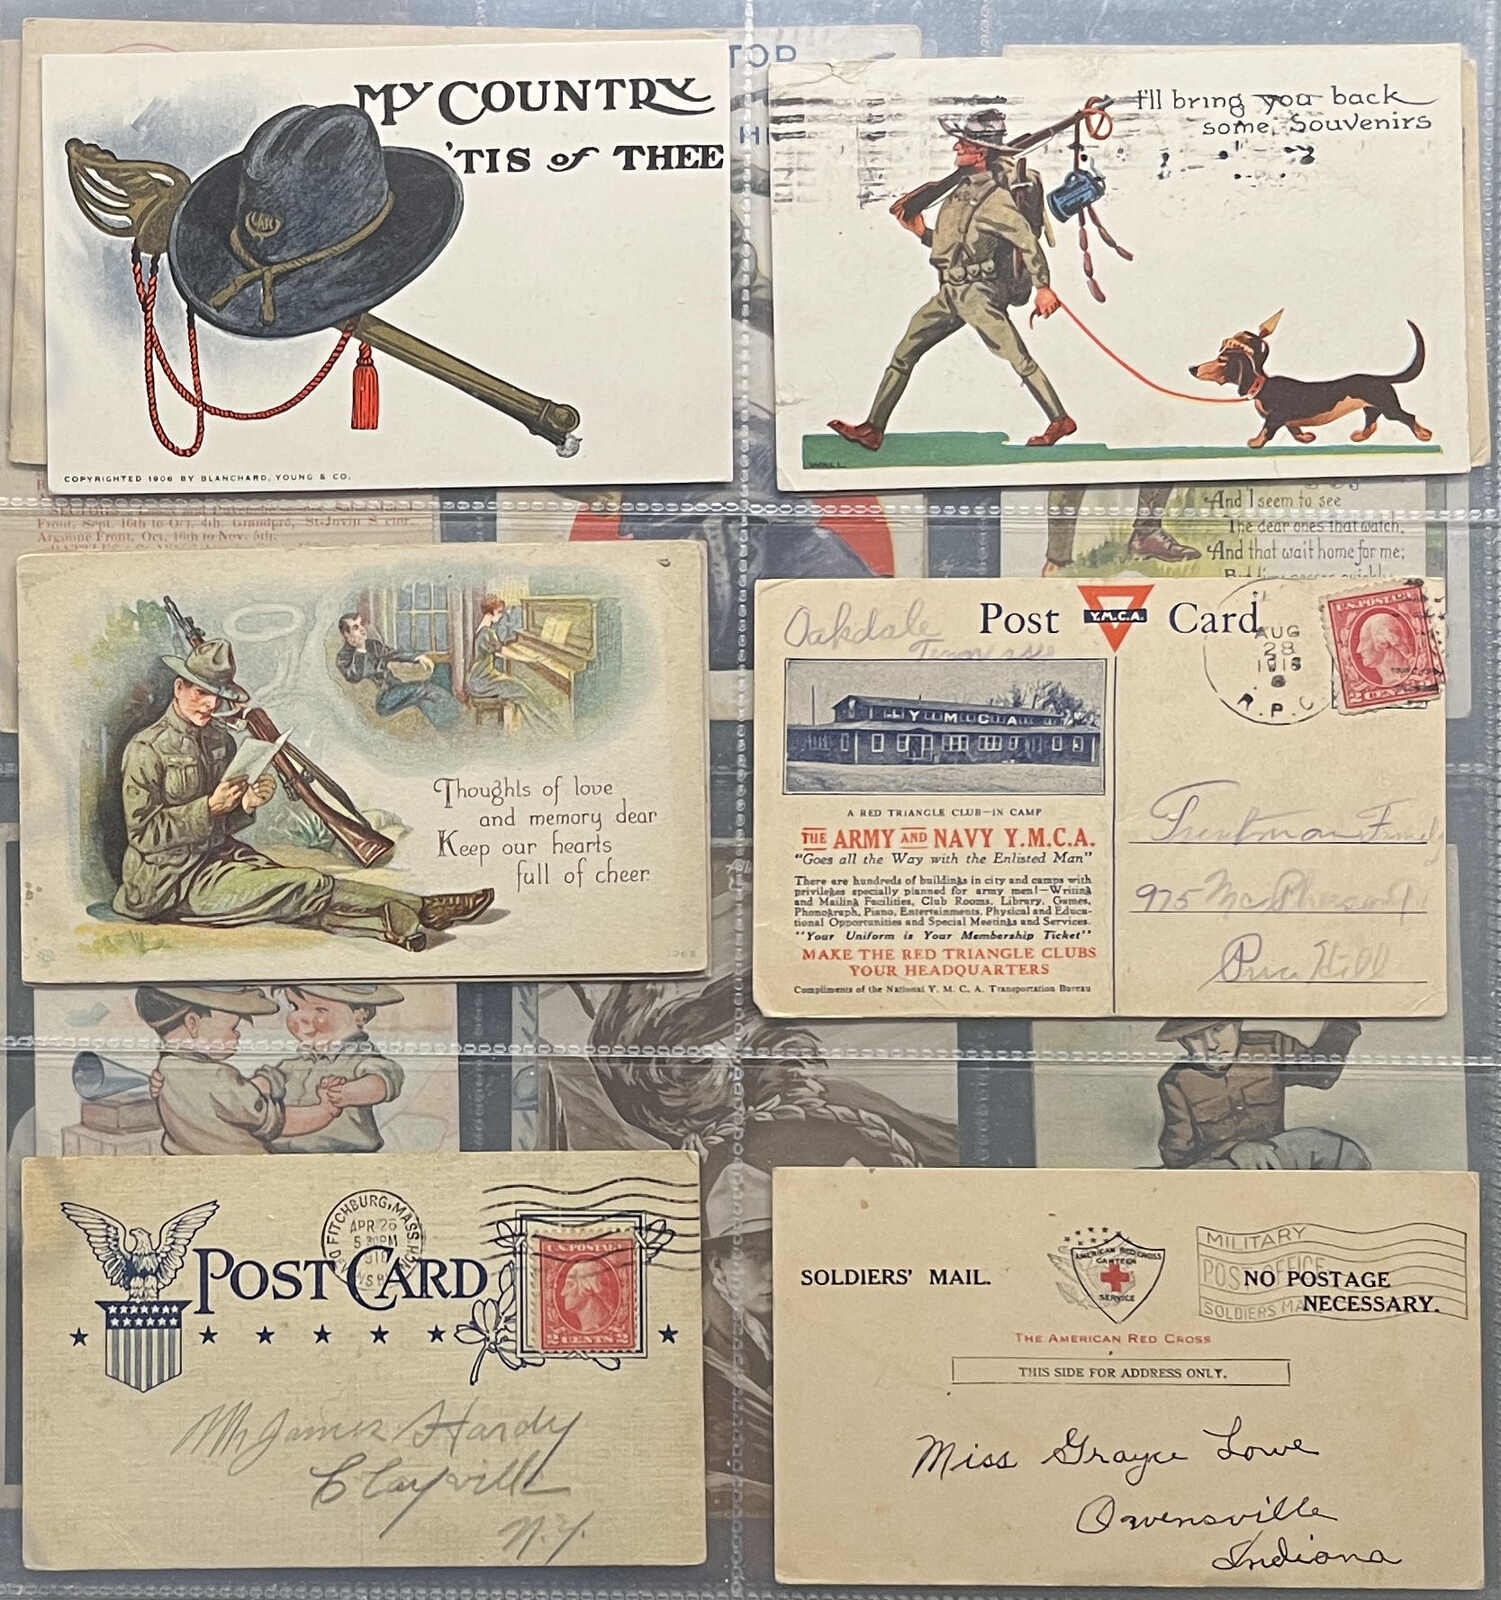 MY COUNTRY
'TIS OF THEE
COPYRIGHTED 1906 BY BLANCHARD, YOUNG & CO.
TOP
I'll bring you back
some Souvenirs
Front, Sept. 16th to Oct. 4th. Grandpré, St-Jovin Sector.
Argonne Front, Oct. 16th to Nov. 5th.
And I seem to see
The dear ones that watch,
And that wait home for me;
Thoughts of love
and memory dear
Keep our hearts
full of cheer.
Oakdale
Tennessee
Post Card
Y.M.C.A.
AUG
28
R.P.O.
U.S. POSTAGE
2 CENTS 2
Y M C A
A RED TRIANGLE CLUB—IN CAMP
THE ARMY AND NAVY Y.M.C.A.
"Goes all the Way with the Enlisted Man"
There are hundreds of buildings in city and camps with
privileges specially planned for army men!—Writing
and Mailing Facilities, Club Rooms, Library, Games,
Phonograph, Piano, Entertainments, Physical and Educa-
tional Opportunities and Special Meetings and Services.
"Your Uniform is Your Membership Ticket"
MAKE THE RED TRIANGLE CLUBS
YOUR HEADQUARTERS
Compliments of the National Y. M. C. A. Transportation Bureau
975
Hill
POST CARD
FITCHBURG, MASS.
APR 26
5 30 PM
U.S. POSTAGE
2 CENTS 2
Mr James Hardy
Clayville
N.Y.
SOLDIERS' MAIL.
AMERICAN RED CROSS
CANTEEN
SERVICE
THE AMERICAN RED CROSS
MILITARY
POST OFFICE
SOLDIERS MA
NO POSTAGE
NECESSARY.
THIS SIDE FOR ADDRESS ONLY.
Miss Grayce Lowe
Owensville
Indiana